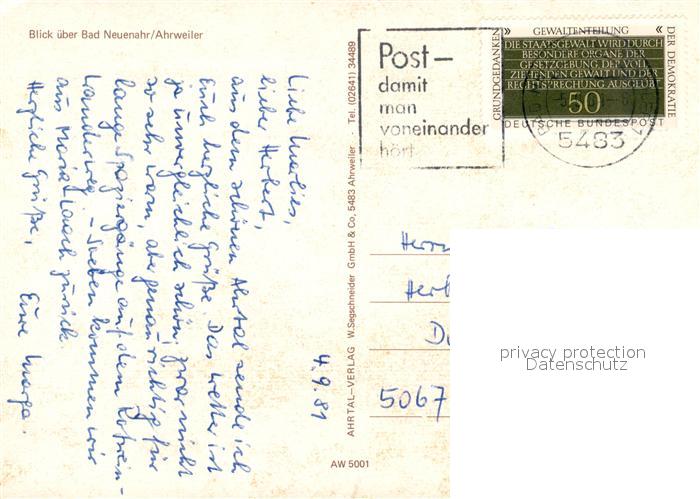 Blick über Bad Neuenahr/Ahrweiler
4.9.81
Liebe Marlies,
lieber Herbert,
aus dem schönen Ahrtal sende ich
Euch herzliche Grüße. Das Wetter ist
ja unvergleichlich schön, zwar nicht
so sehr warm, aber genau richtig für
lange Spaziergänge auf dem Rotwein-
wanderweg. - Soeben kommen wir
aus Maria Laach zurück.
Herzliche Grüße,
Eure Marga.
AHRTAL-VERLAG W.Segschneider GmbH & Co, 5483 Ahrweiler Tel. (02641) 34489
AW 5001
Post-
damit
man
voneinander
hört
GRUNDGEDANKEN
» GEWALTENTEILUNG «
DER DEMOKRATIE
DIE STAATSGEWALT WIRD DURCH
BESONDERE ORGANE DER
GESETZGEBUNG DER VOLL
ZIEHENDEN GEWALT UND DER
RECHTSPRECHUNG AUSGEÜBT
50
DEUTSCHE BUNDESPOST
5483
Herrn
Herb
5067
privacy protection
Datenschutz